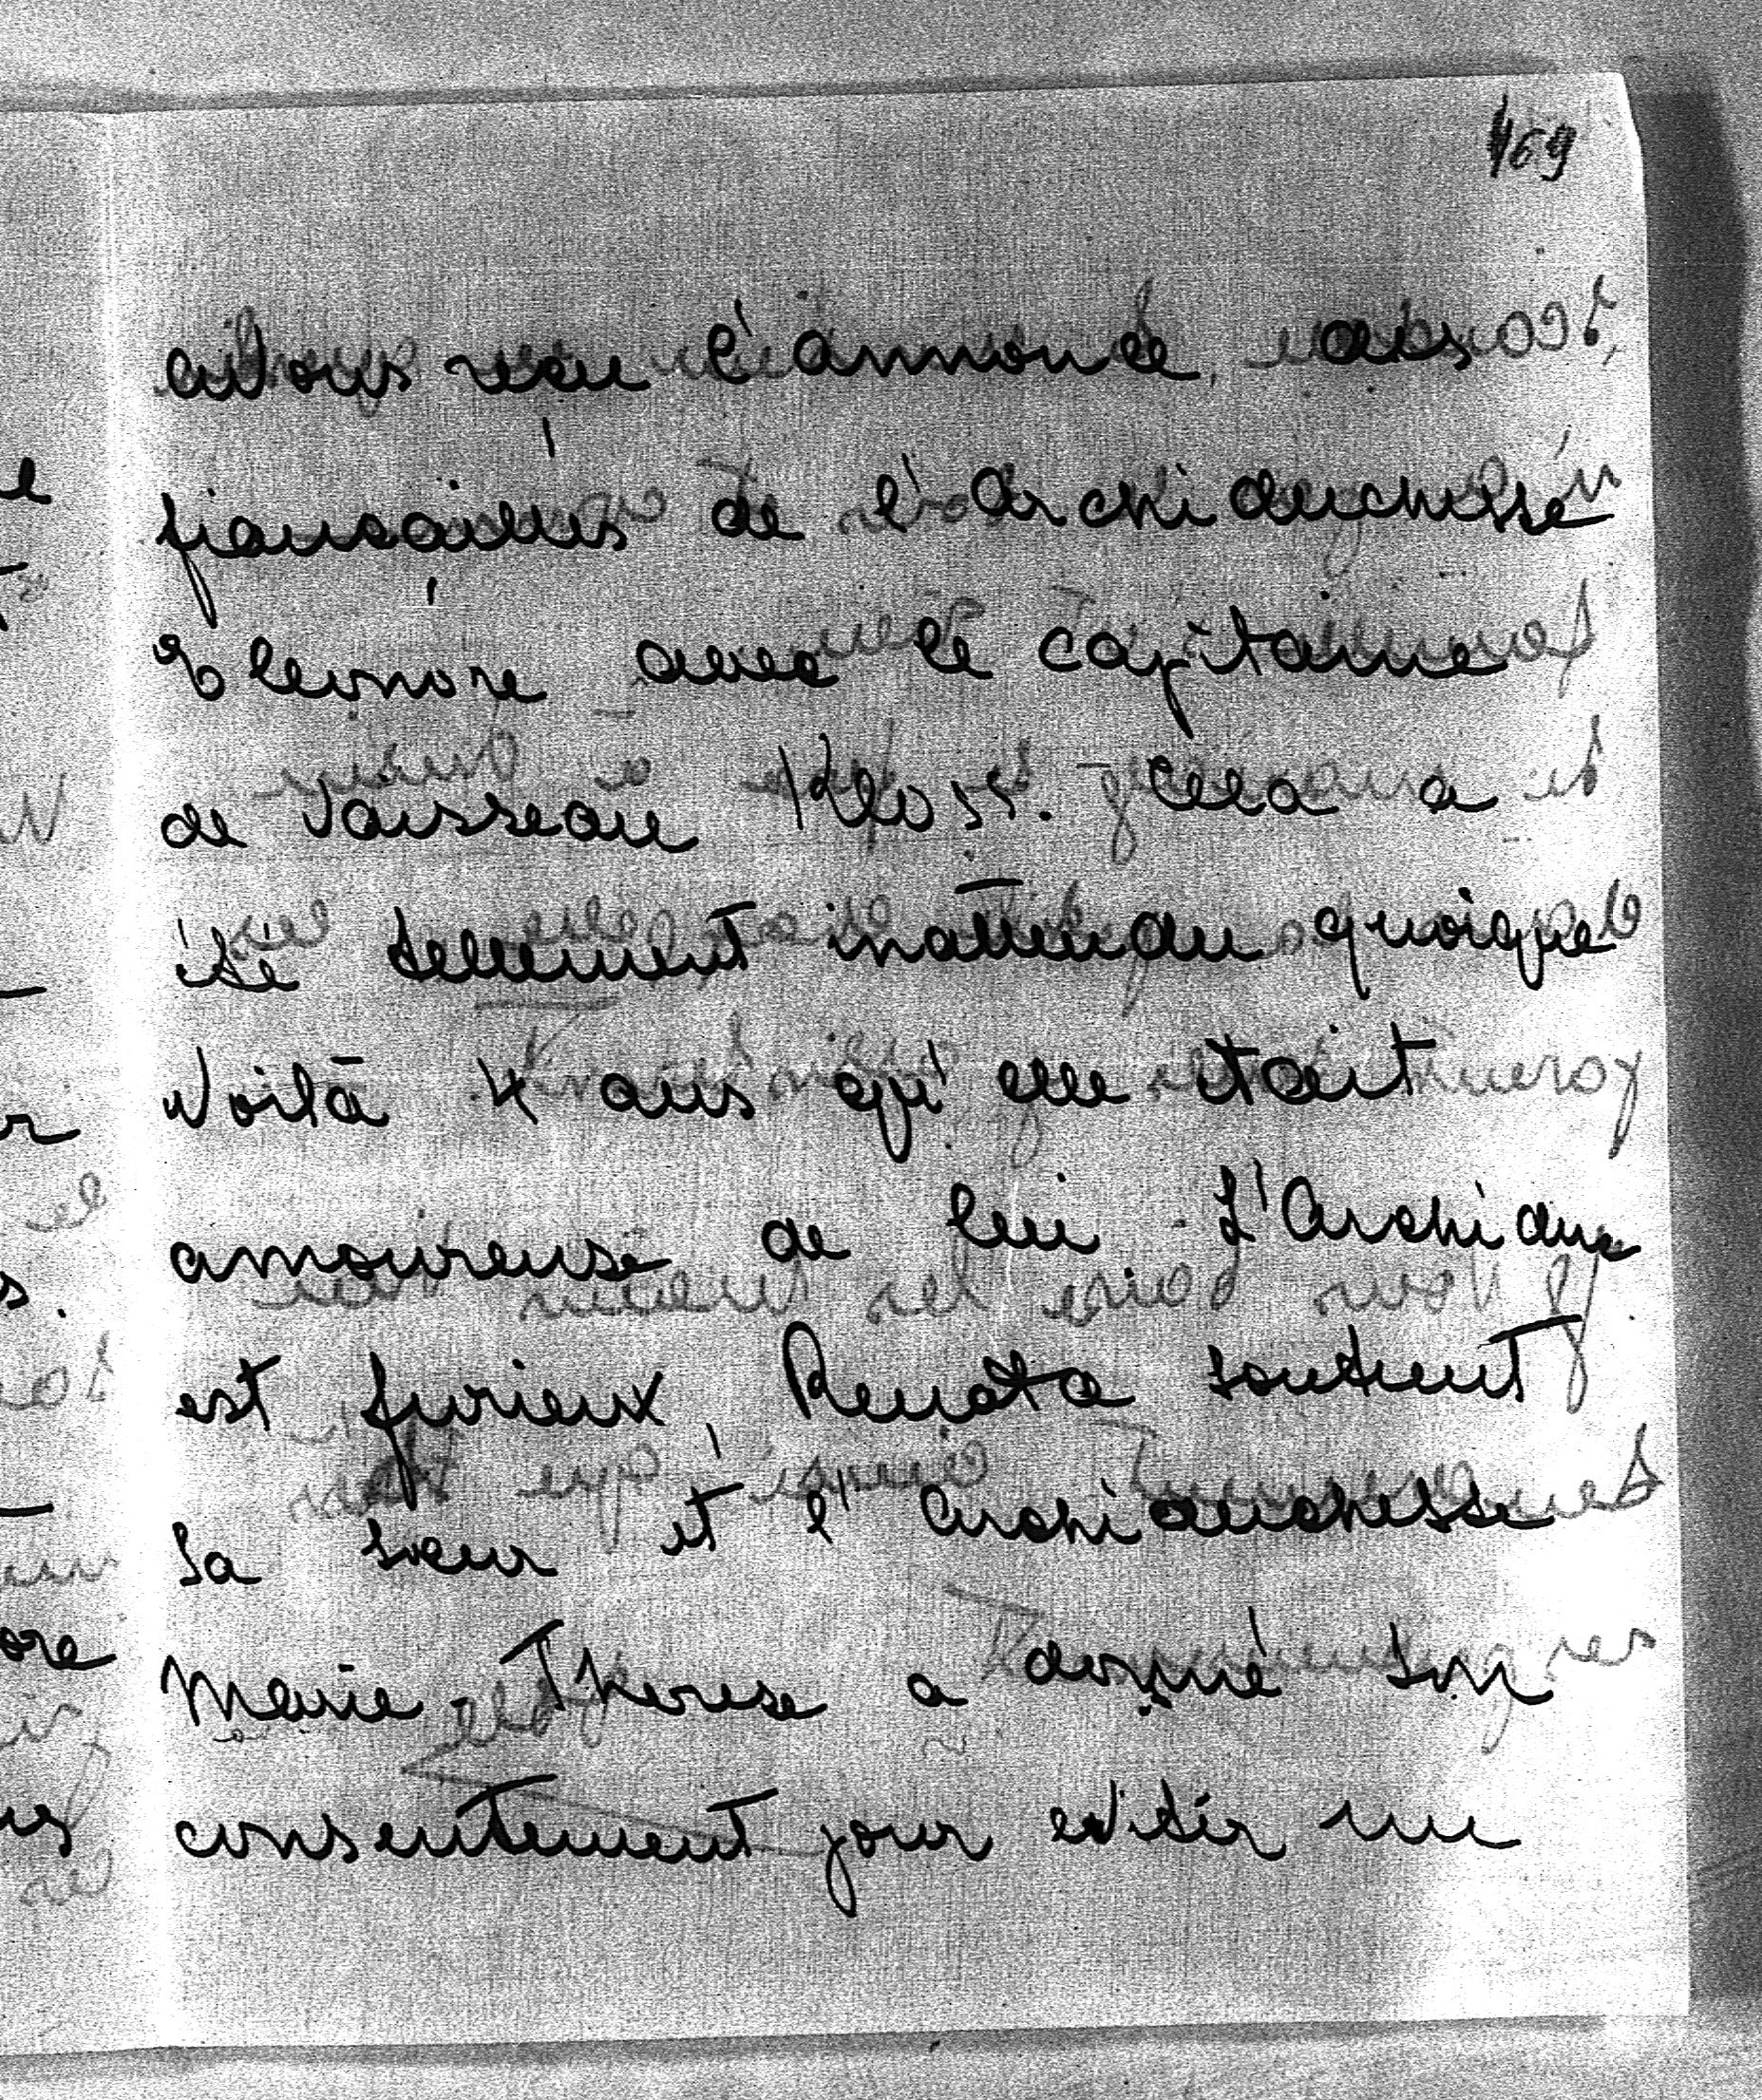 169
avons reçu l'annonce des
fiançailles de l'Archiduchesse
Eleonore avec le capitaine
de vaisseau Kloss. Cela a
été tellement inattendu quoique
voilà 4 ans qu'elle était
amoureuse de lui. L'Archiduc
est furieux, Renata soutient
sa sœur et l'Archiduchesse
Marie-Therese a donné son
consentement pour eviter un